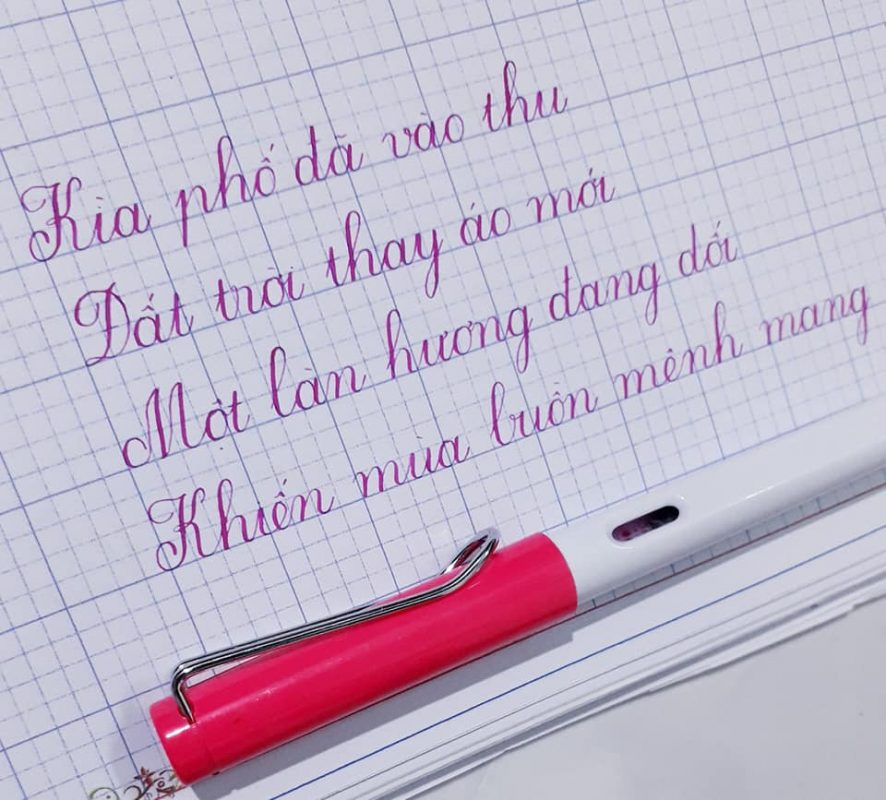 Kìa phố đã vào thu
Đất trời thay áo mới
Một làn hương dang dối
Khiến mùa buồn mênh mang